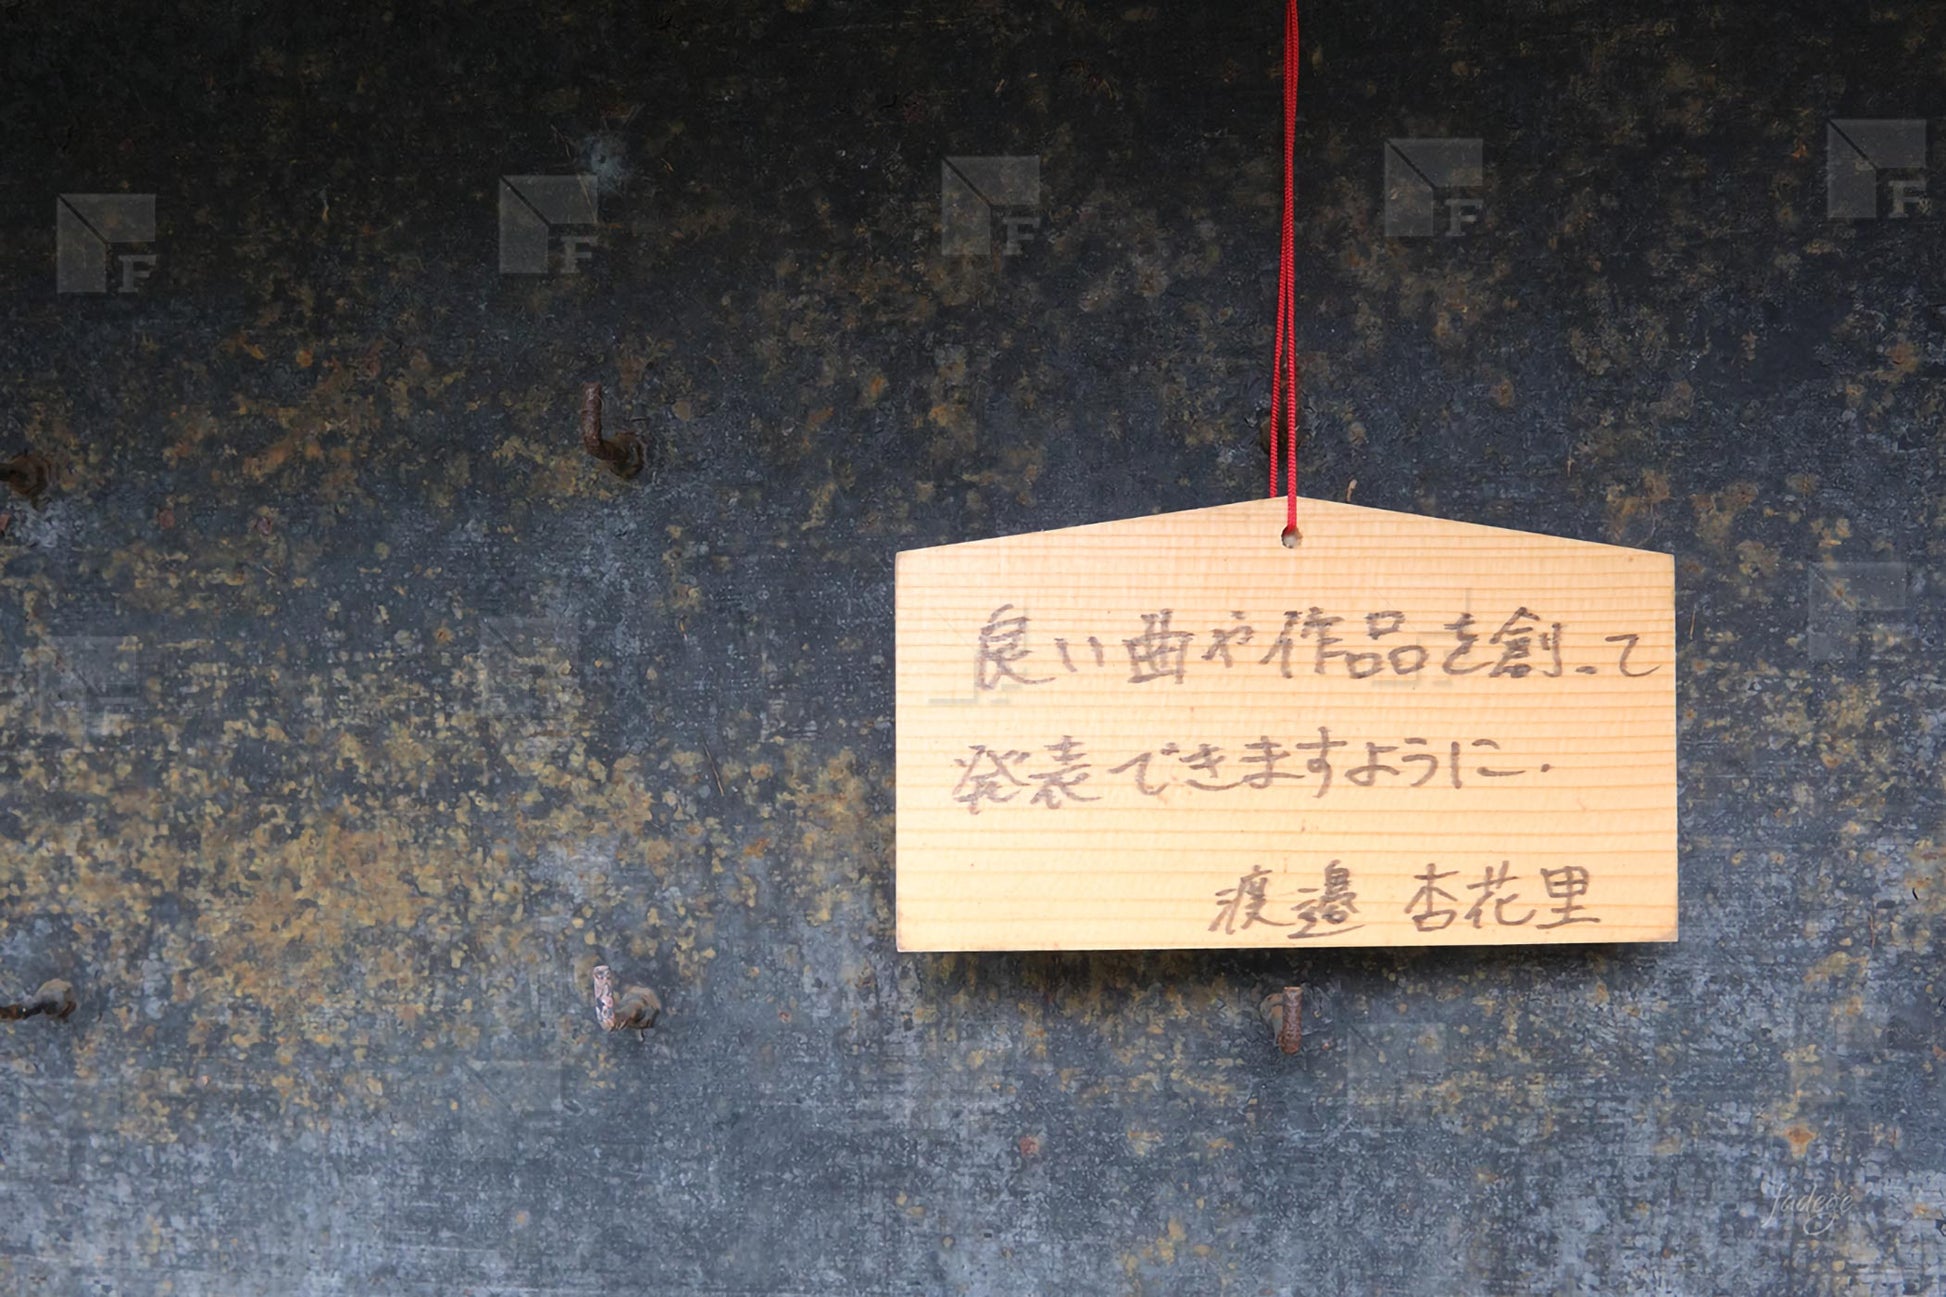 良い曲や作品を創って
発表できますように.
渡邉 杏花里
Jadege